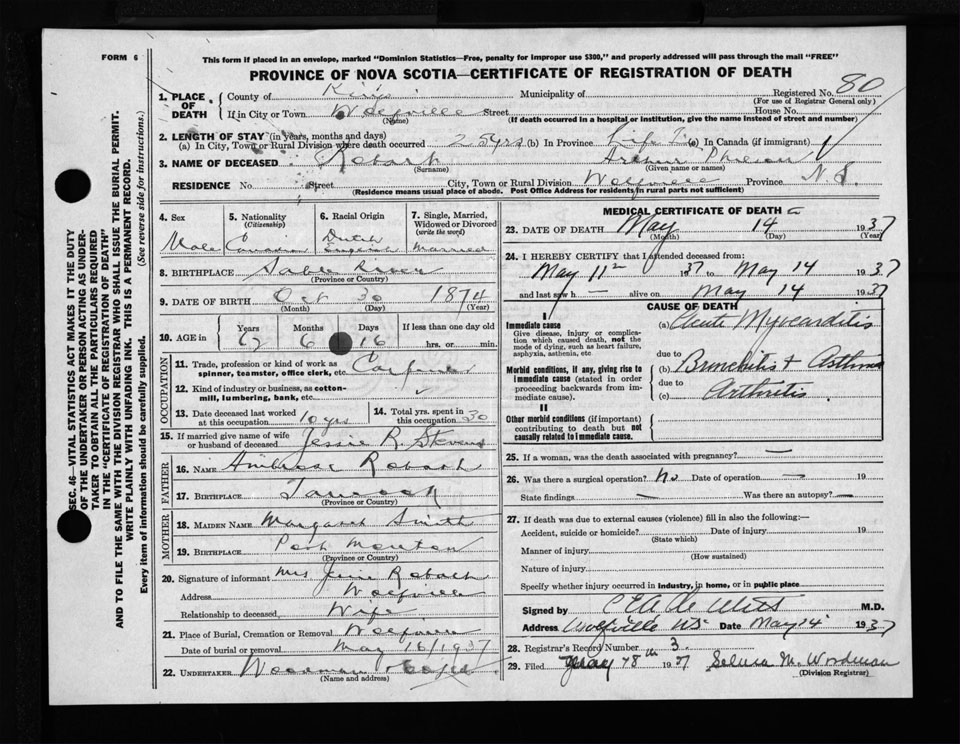 FORM 6
This form if placed in an envelope, marked "Dominion Statistics—Free, penalty for improper use $300," and properly addressed will pass through the mail "FREE"
PROVINCE OF NOVA SCOTIA—CERTIFICATE OF REGISTRATION OF DEATH
SEC. 46—VITAL STATISTICS ACT MAKES IT THE DUTY
OF THE UNDERTAKER OR PERSON ACTING AS UNDER-
TAKER TO OBTAIN ALL THE PARTICULARS REQUIRED
IN THE "CERTIFICATE OF REGISTRATION OF DEATH"
AND TO FILE THE SAME WITH THE DIVISION REGISTRAR WHO SHALL ISSUE THE BURIAL PERMIT.
WRITE PLAINLY WITH UNFADING INK. THIS IS A PERMANENT RECORD.
Every item of information should be carefully supplied. (See reverse side for instructions.)
1. PLACE OF DEATH
County of Kings Municipality of Registered No. 80
(For use of Registrar General only)
If in City or Town Wolfville Street House No.
(Name) (If death occurred in a hospital or institution, give the name instead of street and number)
2. LENGTH OF STAY (in years, months and days)
(a) In City, Town or Rural Division where death occurred 25 yrs (b) In Province Life (c) In Canada (if immigrant)
3. NAME OF DECEASED Robart Arthur
(Surname) (Given name or names)
RESIDENCE No. Street City, Town or Rural Division Wolfville Province N.S.
(Residence means usual place of abode. Post Office Address for residents in rural parts not sufficient)
4. Sex Male
5. Nationality (Citizenship) Canadian
6. Racial Origin Dutch English
7. Single, Married, Widowed or Divorced (write the word) Married
8. BIRTHPLACE Sable River
(Province or Country)
9. DATE OF BIRTH Oct 30 1874
(Month) (Day) (Year)
10. AGE in Years Months Days If less than one day
62 6 16 hrs. or min.
OCCUPATION
11. Trade, profession or kind of work as
spinner, teamster, office clerk, etc. Carpenter
12. Kind of industry or business, as cotton-
mill, lumbering, bank, etc.
13. Date deceased last worked
at this occupation 10 yrs
14. Total yrs. spent in
this occupation 30
15. If married give name of wife
or husband of deceased Jessie R. Stevens
FATHER
16. NAME Ambrose Robart
17. BIRTHPLACE
(Province or Country)
MOTHER
18. MAIDEN NAME Margaret Smith
19. BIRTHPLACE Port Mouton
(Province or Country)
20. Signature of informant Mrs Jessie Robart
Address Wolfville
Relationship to deceased Wife
21. Place of Burial, Cremation or Removal Wolfville
Date of burial or removal May 16/1937
22. UNDERTAKER Woodman
(Name and address)
MEDICAL CERTIFICATE OF DEATH
23. DATE OF DEATH May 14 1937
(Month) (Day) (Year)
24. I HEREBY CERTIFY that I attended deceased from:
May 11th 1937 to May 14 1937
and last saw h — alive on May 14 1937
CAUSE OF DEATH
I
Immediate cause
Give disease, injury or complica-
tion which caused death, not the
mode of dying, such as heart failure,
asphyxia, asthenia, etc
(a) Acute Myocarditis
due to
Morbid conditions, if any, giving rise to
immediate cause (stated in order
proceeding backwards from im-
mediate cause).
(b) Bronchitis & Asthma
due to
(c) Arthritis
II
Other morbid conditions (if important)
contributing to death but not
causally related to immediate cause.
25. If a woman, was the death associated with pregnancy? —
26. Was there a surgical operation? No Date of operation — 19
State findings — Was there an autopsy? —
27. If death was due to external causes (violence) fill in also the following:—
Accident, suicide or homicide? Date of injury 19
(State which)
Manner of injury
(How sustained)
Nature of injury
Specify whether injury occurred in industry, in home, or in public place
Signed by C E A DeWitt M.D.
Address Wolfville NS Date May 14 1937
28. Registrar's Record Number 3
29. Filed May 18th 1937 M. Woodman
(Division Registrar)